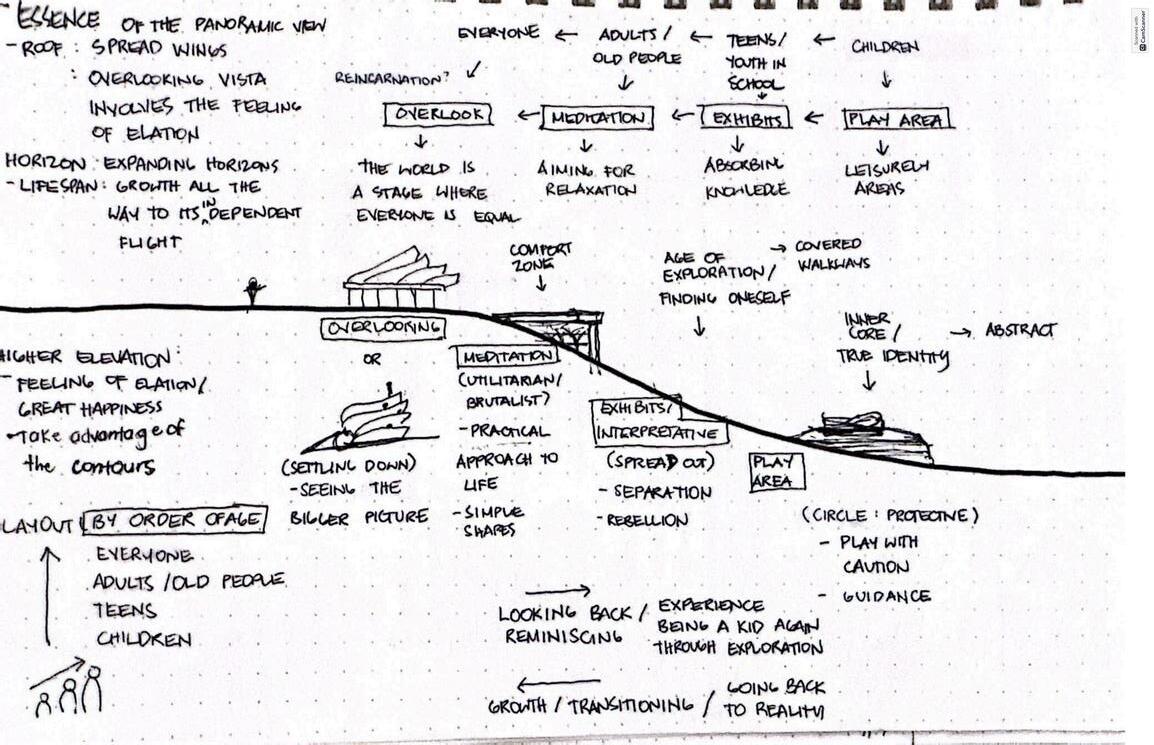 ESSENCE OF THE PANORAMIC VIEW
- ROOF : SPREAD WINGS
: OVERLOOKING VISTA
INVOLVES THE FEELING
OF ELATION
HORIZON : EXPANDING HORIZONS
- LIFESPAN : GROWTH ALL THE
WAY TO ITS INDEPENDENT
FLIGHT
EVERYONE ← ADULTS / ← TEENS/ ← CHILDREN
OLD PEOPLE
YOUTH IN
SCHOOL
REINCARNATION?
OVERLOOK ← MEDITATION ← EXHIBITS ← PLAY AREA
THE WORLD IS
A STAGE WHERE
EVERYONE IS EQUAL
AIMING FOR
RELAXATION
ABSORBING
KNOWLEDGE
LEISURELY
AREAS
COMFORT
ZONE
AGE OF
EXPLORATION/
FINDING ONESELF
→ COVERED
WALKWAYS
INNER
CORE/
TRUE IDENTITY
→ ABSTRACT
OVERLOOKING
OR
(SETTLING DOWN)
- SEEING THE
BIGGER PICTURE
MEDITATION
(UTILITARIAN/
BRUTALIST)
- PRACTICAL
APPROACH TO
LIFE
- SIMPLE
SHAPES
EXHIBITS/
INTERPRETATIVE
(SPREAD OUT)
- SEPARATION
- REBELLION
PLAY
AREA
(CIRCLE : PROTECTIVE)
- PLAY WITH
CAUTION
- GUIDANCE
HIGHER ELEVATION:
- FEELING OF ELATION/
GREAT HAPPINESS
- Take advantage of
the contours
LAYOUT BY ORDER OF AGE
EVERYONE
ADULTS / OLD PEOPLE
TEENS
CHILDREN
LOOKING BACK /
REMINISCING
EXPERIENCE
BEING A KID AGAIN
THROUGH EXPLORATION
GROWTH / TRANSITIONING /
GOING BACK
TO REALITY
Scanned with
CamScanner